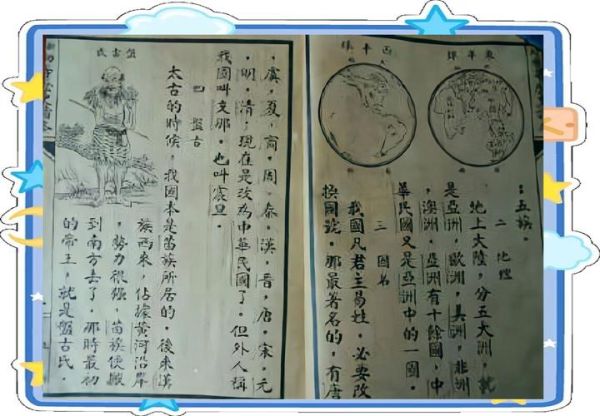 東半球
西半球
：五族。
二 地理
地上大陸，分五大洲，就
是亞洲，歐洲，美洲，非洲
，澳洲，亞洲有十餘國，中
華民國又是亞洲中的一國。
三 國名
我國凡君主易姓，必要改
換國號。那最著名的，有唐
，虞，夏，商，周，秦，漢，晉，唐，宋，元
，明，清，現在是改為中華民國了。但外人稱
我國叫支那。也叫震旦。
四 盤古
太古的時候，我國本是苗族所居的。後來漢
族西來，佔據黃河沿岸
，勢力很強，苗族便搬
到南方去了。那時最初
的帝王，就是盤古氏。
盤古氏